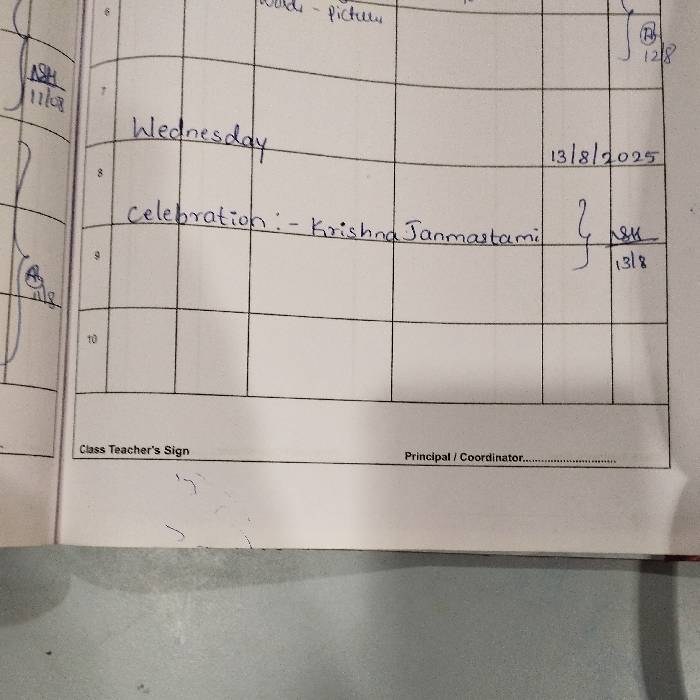 6
Words - Pictures
12/8
11/08
7
Wednesday
13/8/2025
8
Celebration :- Krishna Janmastami
13/8
9
11/8
10
Class Teacher's Sign
Principal / Coordinator..............................